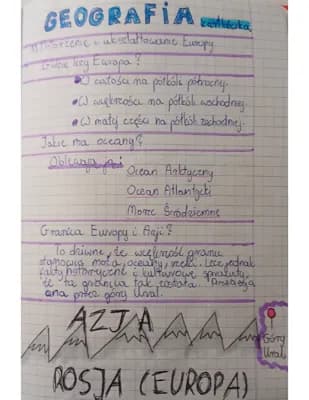 GEOGRAFIA kartkówka
Położenie i ukształtowanie Europy
Gdzie leży Europa?
• W całości na półkuli północnej.
• W większości na półkuli wschodniej.
• W małej części na półkuli zachodniej.
Jakie ma oceany?
Oblewają ją:
Ocean Arktyczny
Ocean Atlantycki
Morze Śródziemne
Granica Europy i Azji?
To dziwne, że większość granic
stanowią morza, oceany, rzeki. Lecz jednak
fakty historyczne i kulturowe sprawiły,
że ta granica tak została. Przebiega
ona przez góry Ural.
AZJA
Góry
Ural
ROSJA (EUROPA)